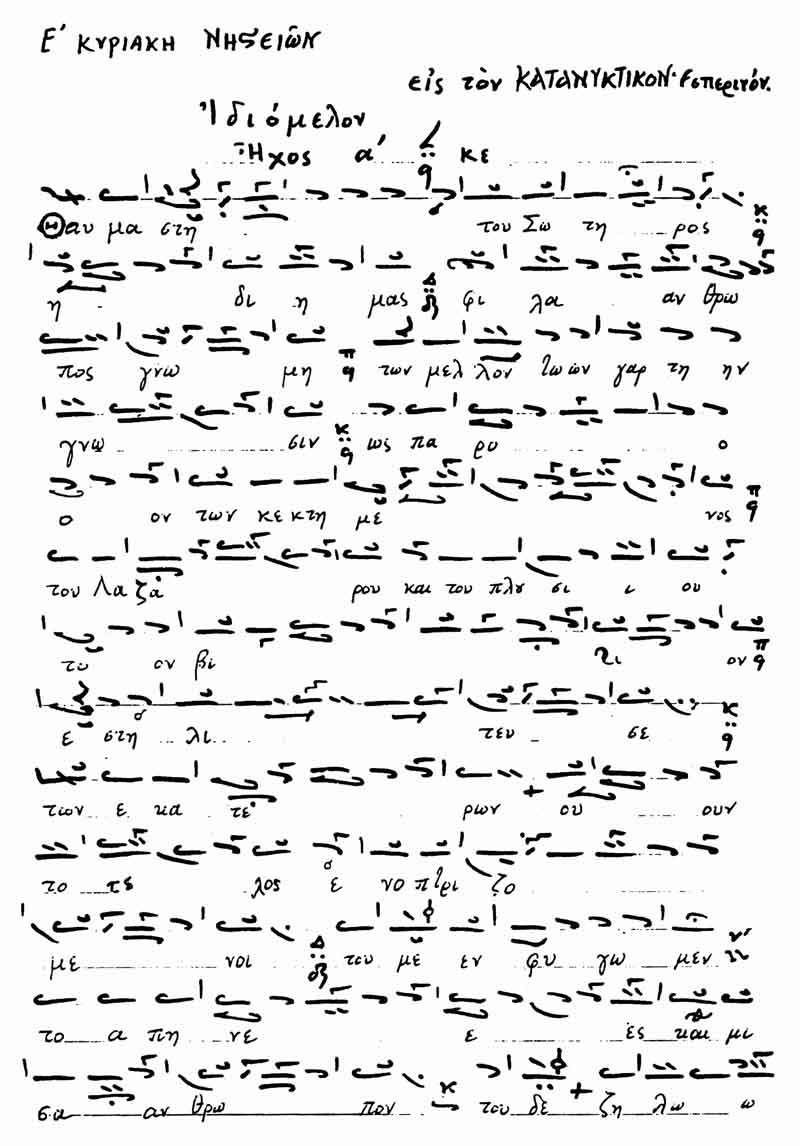 Ε' ΚΥΡΙΑΚΗ ΝΗϚΕΙῶΝ
εἰς τὸν ΚΑΤΑΝΥΚΤΙΚΟΝ Ἑσπερινόν.
Ἰδιόμελον
Ἦχος α' κε
Θαυ μα στη του Σω τη ρος
η δι η μας φι λα αν θρω
πος γνω μη των μελ λον των γαρ τη ην
γνω σιν ως πα ρο ο
ο ον των κε κτη με νος
του Λα ζα ρου και του πλου σι ι ου
το ον βι ον
ε στη λι τευ σε
των ε κα τε ρων ου ουν
το τε λος ε νο πτρι ζο
με νοι του με εν φυ γω μεν
το α πη νε ε ες και μι
σα αν θρω πον του δε ζη λω ω